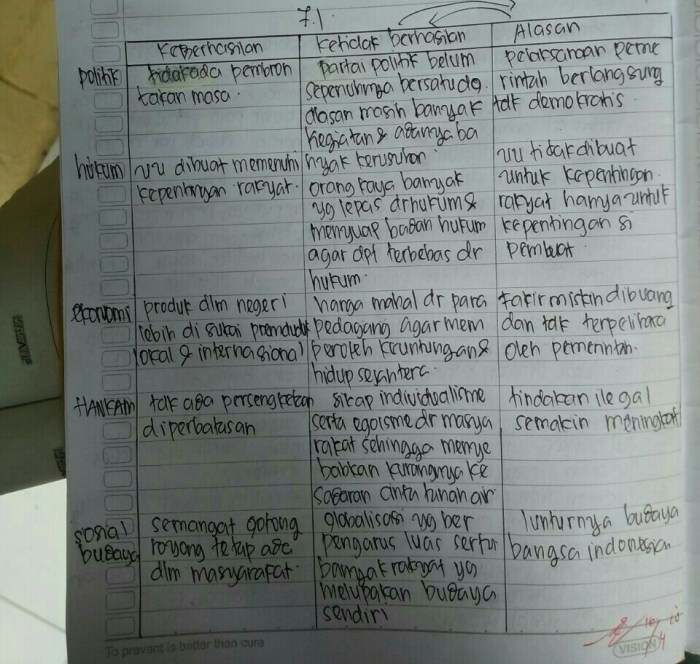 7.1
Keberhasilan
Ketidak berhasilan
Alasan
politik
tidak ada pembron
takan masa.
partai politik belum
sepenuhnya bersatu dg.
alasan masih banyak
kegiatan & adanya ba
nyak kerusuhan.
pelaksanaan peme
rintah berlangsung
tdk demokratis
hukum
uu dibuat memenuhi
kepentingan rakyat.
orang kaya banyak
yg lepas dr hukum &
menyuap badan hukum
agar dpt terbebas dr
hukum.
uu tidak dibuat
untuk kepentingan
rakyat hanya untuk
kepentingan si
pembuat.
ekonomi
produk dlm negeri
lebih di sukai penduduk
lokal & internasional
harga mahal dr para
pedagang agar mem
peroleh keuntungan &
hidup sejahtera.
fakir miskin dibuang
dan tdk terpelihara
oleh pemerintah.
HANKAM
tdk ada persengketaan
diperbatasan
sikap individualisme
serta egoisme dr masya
rakat sehingga menye
babkan kurangnya ke
sadaran cinta tanah air
tindakan ilegal
semakin meningkat
sosial
budaya
semangat gotong
royong tetap ada
dlm masyarakat.
globalisasi yg ber
pengarus luas
banyak rakyat yg
melupakan budaya
sendiri
lunturnya budaya
bangsa indonesia
To pravant is batter than cura
VISION